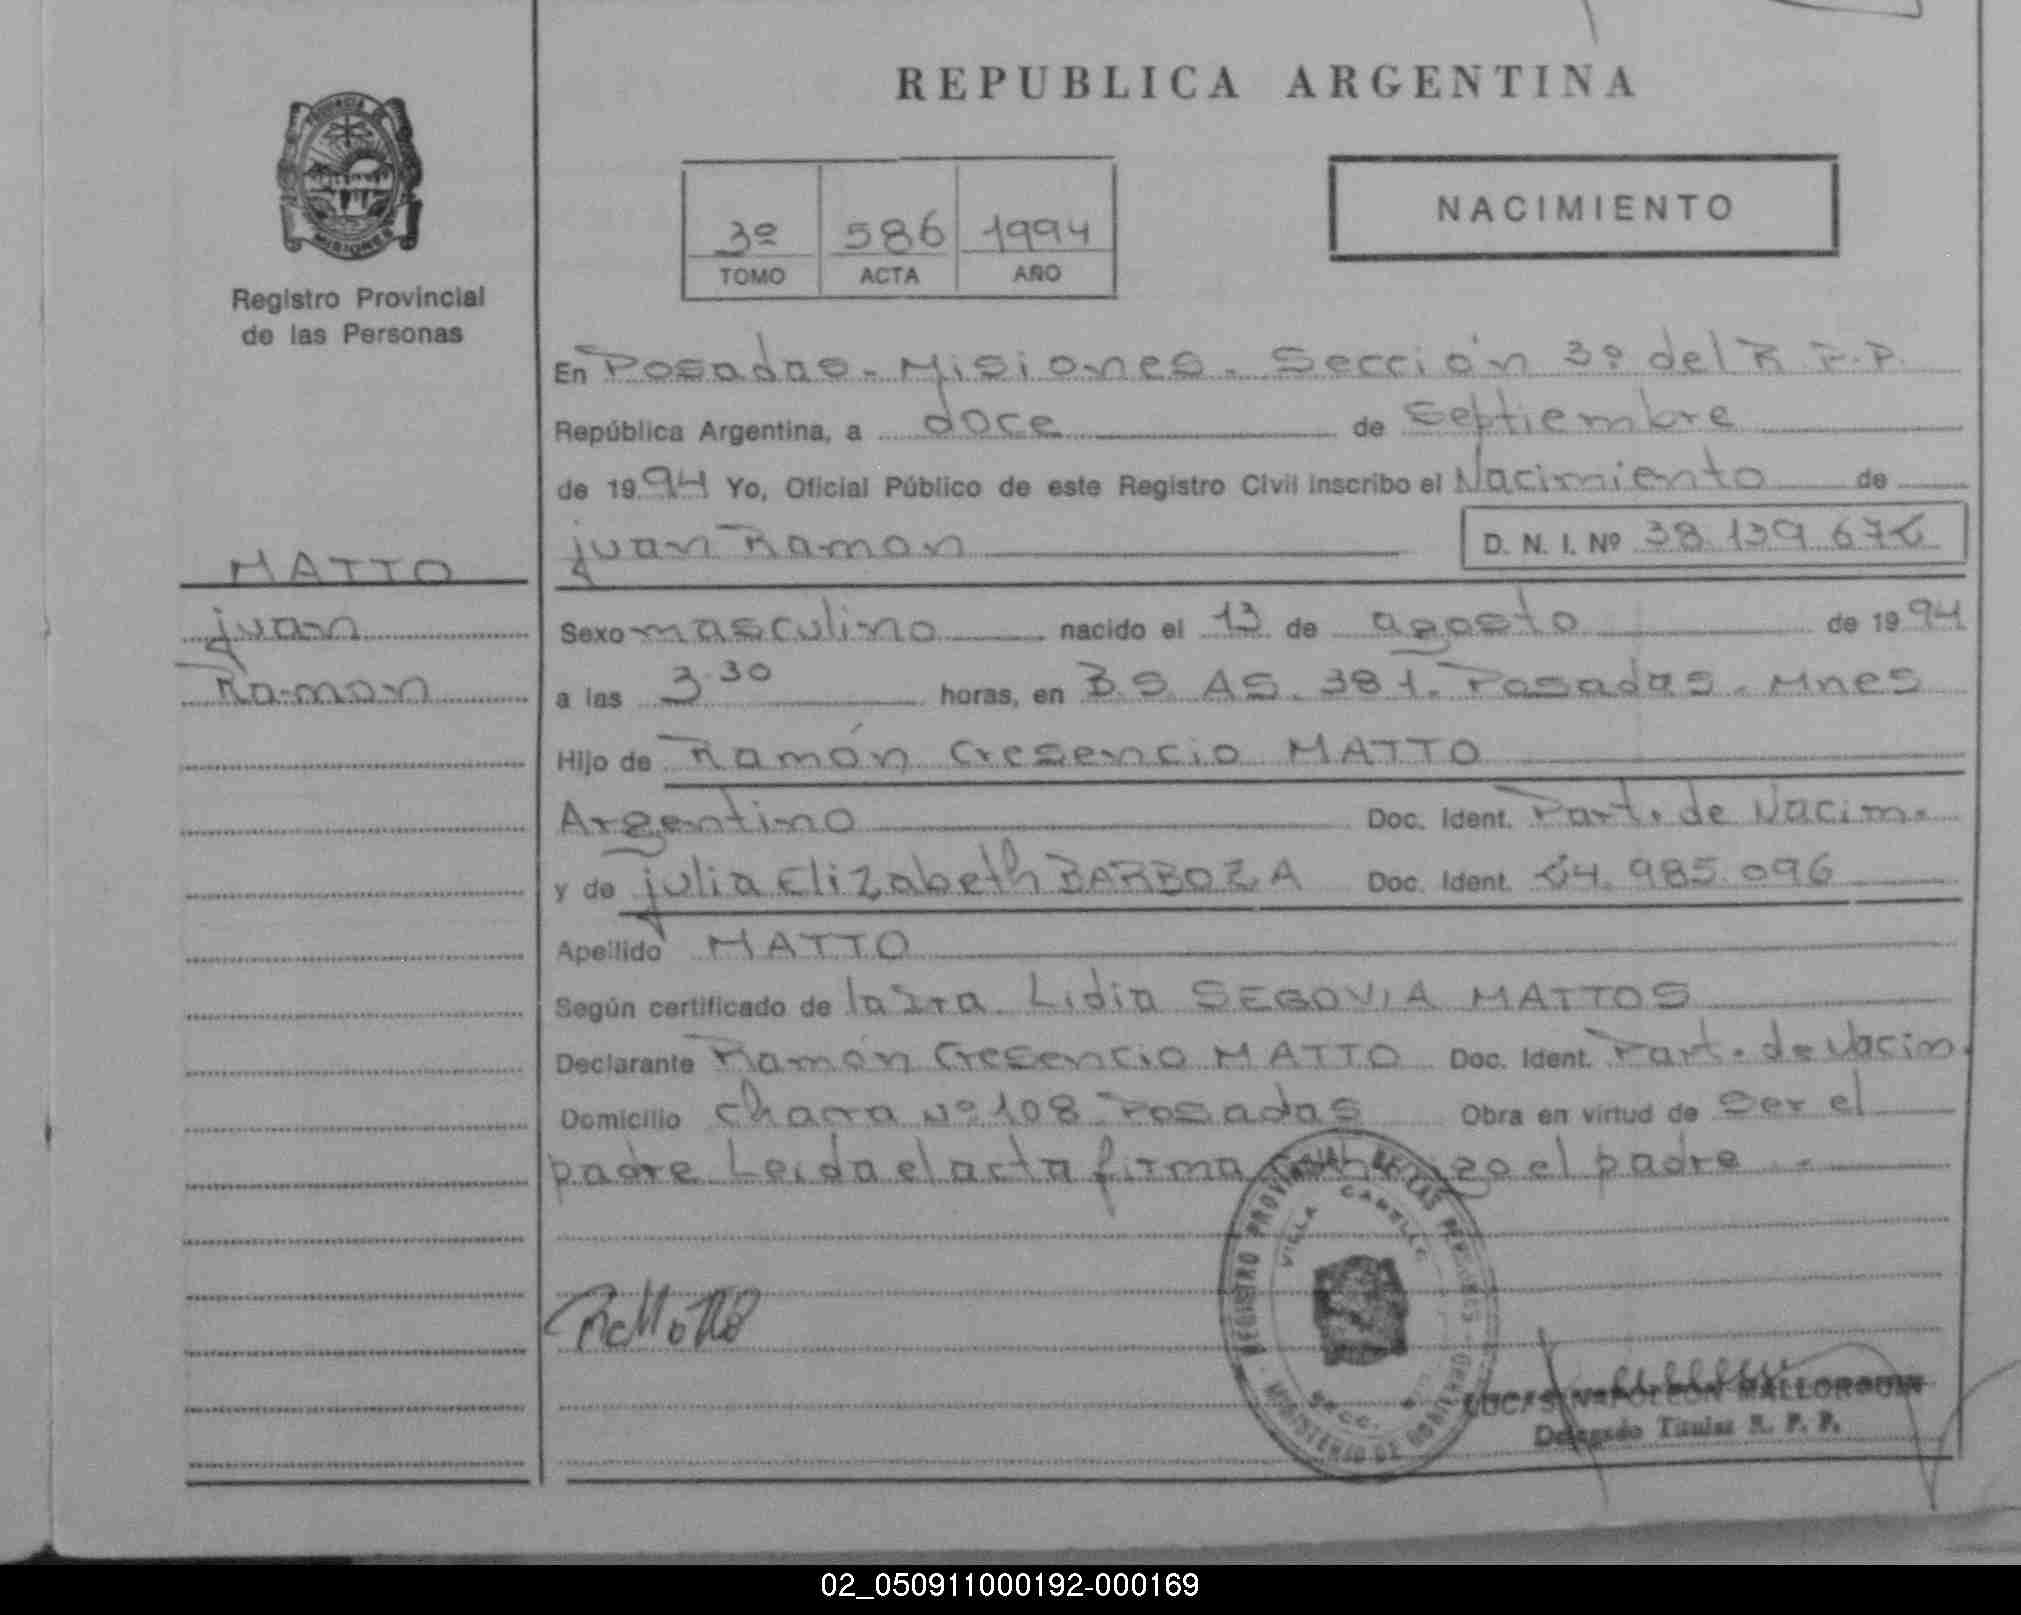 REPUBLICA ARGENTINA
PROVINCIA DE
MISIONES
Registro Provincial
de las Personas
3º 586 1994
TOMO ACTA AÑO
NACIMIENTO
En Posadas - Misiones. Sección 3º del R.P.P.
República Argentina, a doce de Septiembre
de 1994 Yo, Oficial Público de este Registro Civil inscribo el Nacimiento de
juan Ramon D. N. I. Nº
MATTO
juan
Ramon
Sexo masculino nacido el 13 de agosto de 1994
a las 3.30 horas, en B.S. AS. 381. Posadas - Mnes
Hijo de Ramón Cresencio MATTO
Argentino Doc. Ident. Part. de Nacim.
y de julia Elizabeth BARBOZA Doc. Ident. 985.096
Apellido MATTO
Según certificado de la Sra. Lidia SEGOVIA MATTOS
Declarante Ramón Cresencio MATTO Doc. Ident. Part. de Nacim.
Domicilio chacra Nº 108 Posadas Obra en virtud de Ser el
padre Leida el acta firma conmigo el padre
REGISTRO PROVINCIAL DE LAS PERSONAS
MINISTERIO DE GOBIERNO
VILLA
LUCAS NAPOLEON MALLORQUIN
Delegado Titular R. P. P.
02_050911000192-000169